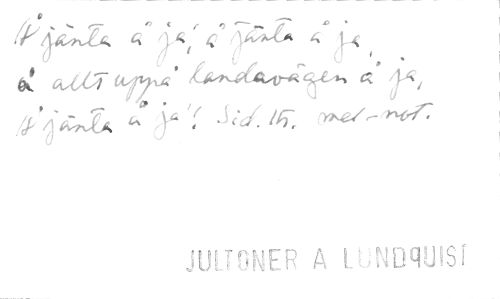 Å jänta å ja, å jänta å ja,
å allt uppå landavägen å ja,
Å jänta å ja! Sid. 14. mel-not.
JULTONER A LUNDQUIST